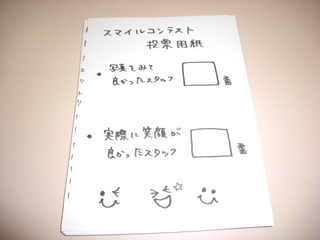 スマイルコンテスト
投票用紙
・写真をみて
良かったスタッフ
番
・実際に笑顔が
良かったスタッフ
番